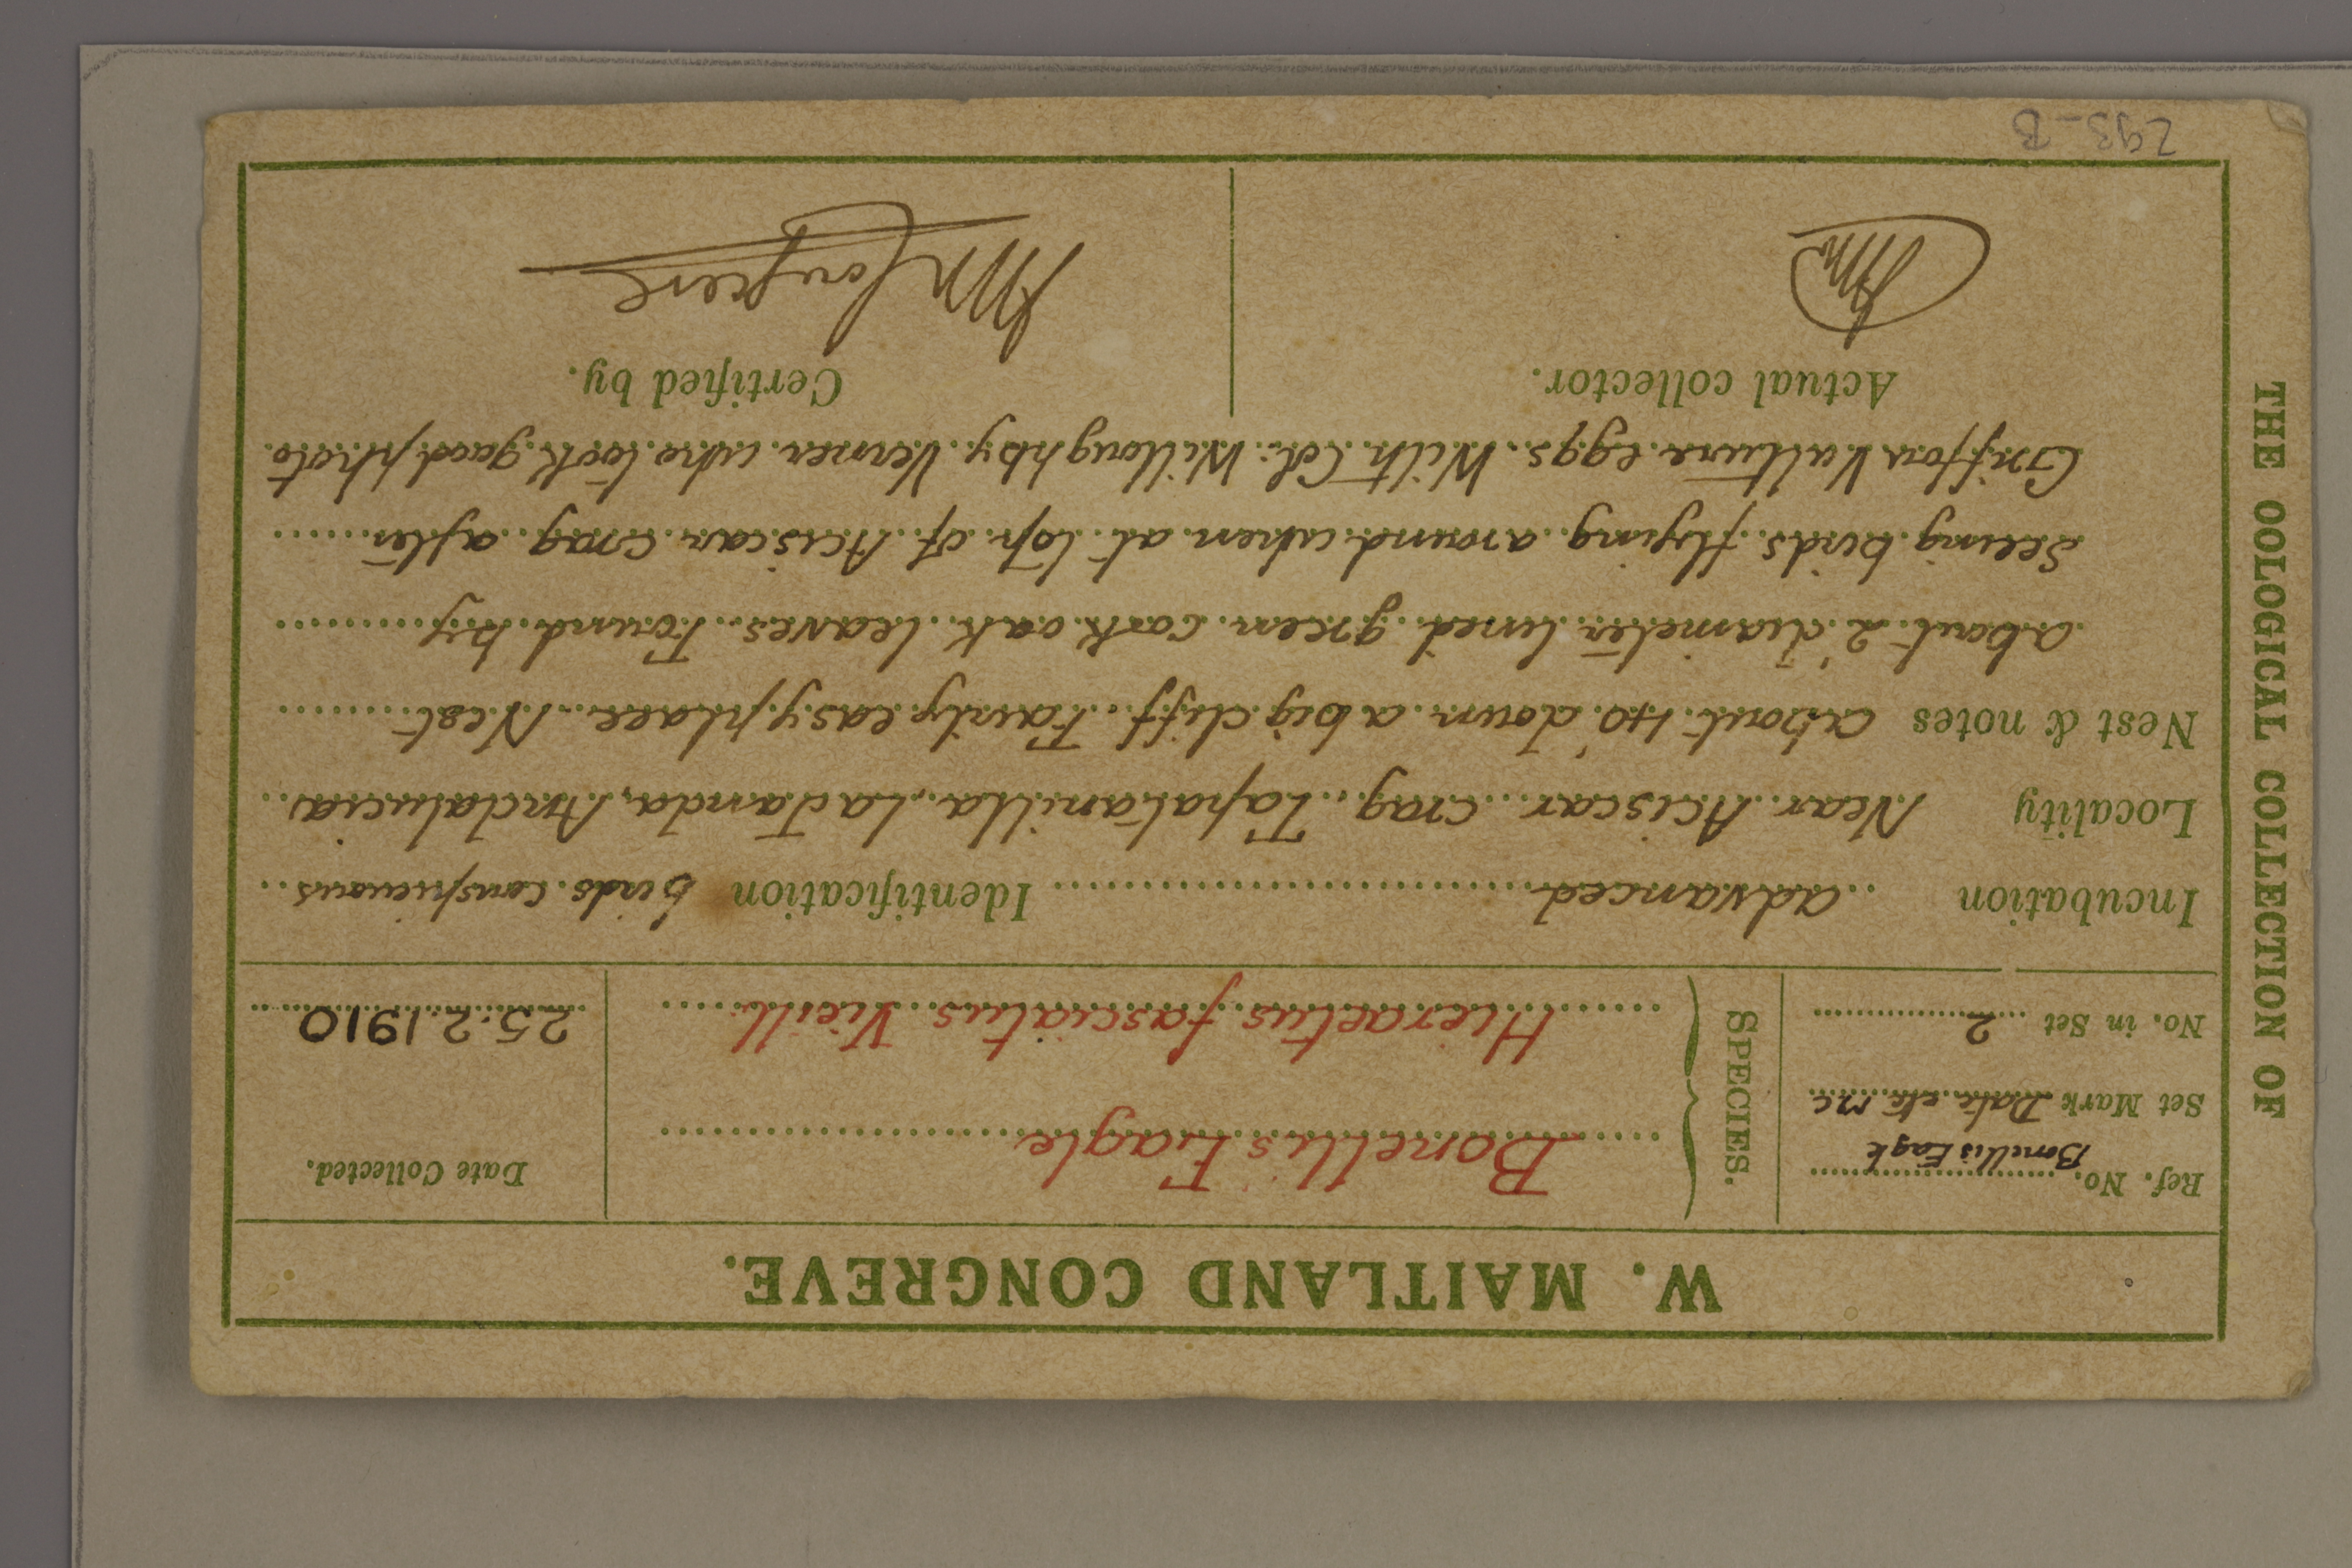 THE OOLOGICAL COLLECTION OF
W. MAITLAND CONGREVE.
Ref. No. Bonellis Eagle
Set Mark Date etc mc
No. in Set 2
SPECIES.
Bonelli's Eagle
Hieraetus fasciatus Vieill.
Date Collected.
25.2.1910
Incubation advanced Identification birds conspicuous
Locality Near Aciscar crag, Tapatanilla, La Janda, Andalucia
Nest & notes about 40' down a big cliff. Fairly easy place. Nest
about 2' diameter lined green cork oak leaves. Found by
seeing birds flying around when at top of Aciscar crag after
Griffon Vulture eggs. With Col: Willoughby Verner who took good photo.
Actual collector.
Certified by.
WM
WM Congreve
293-B